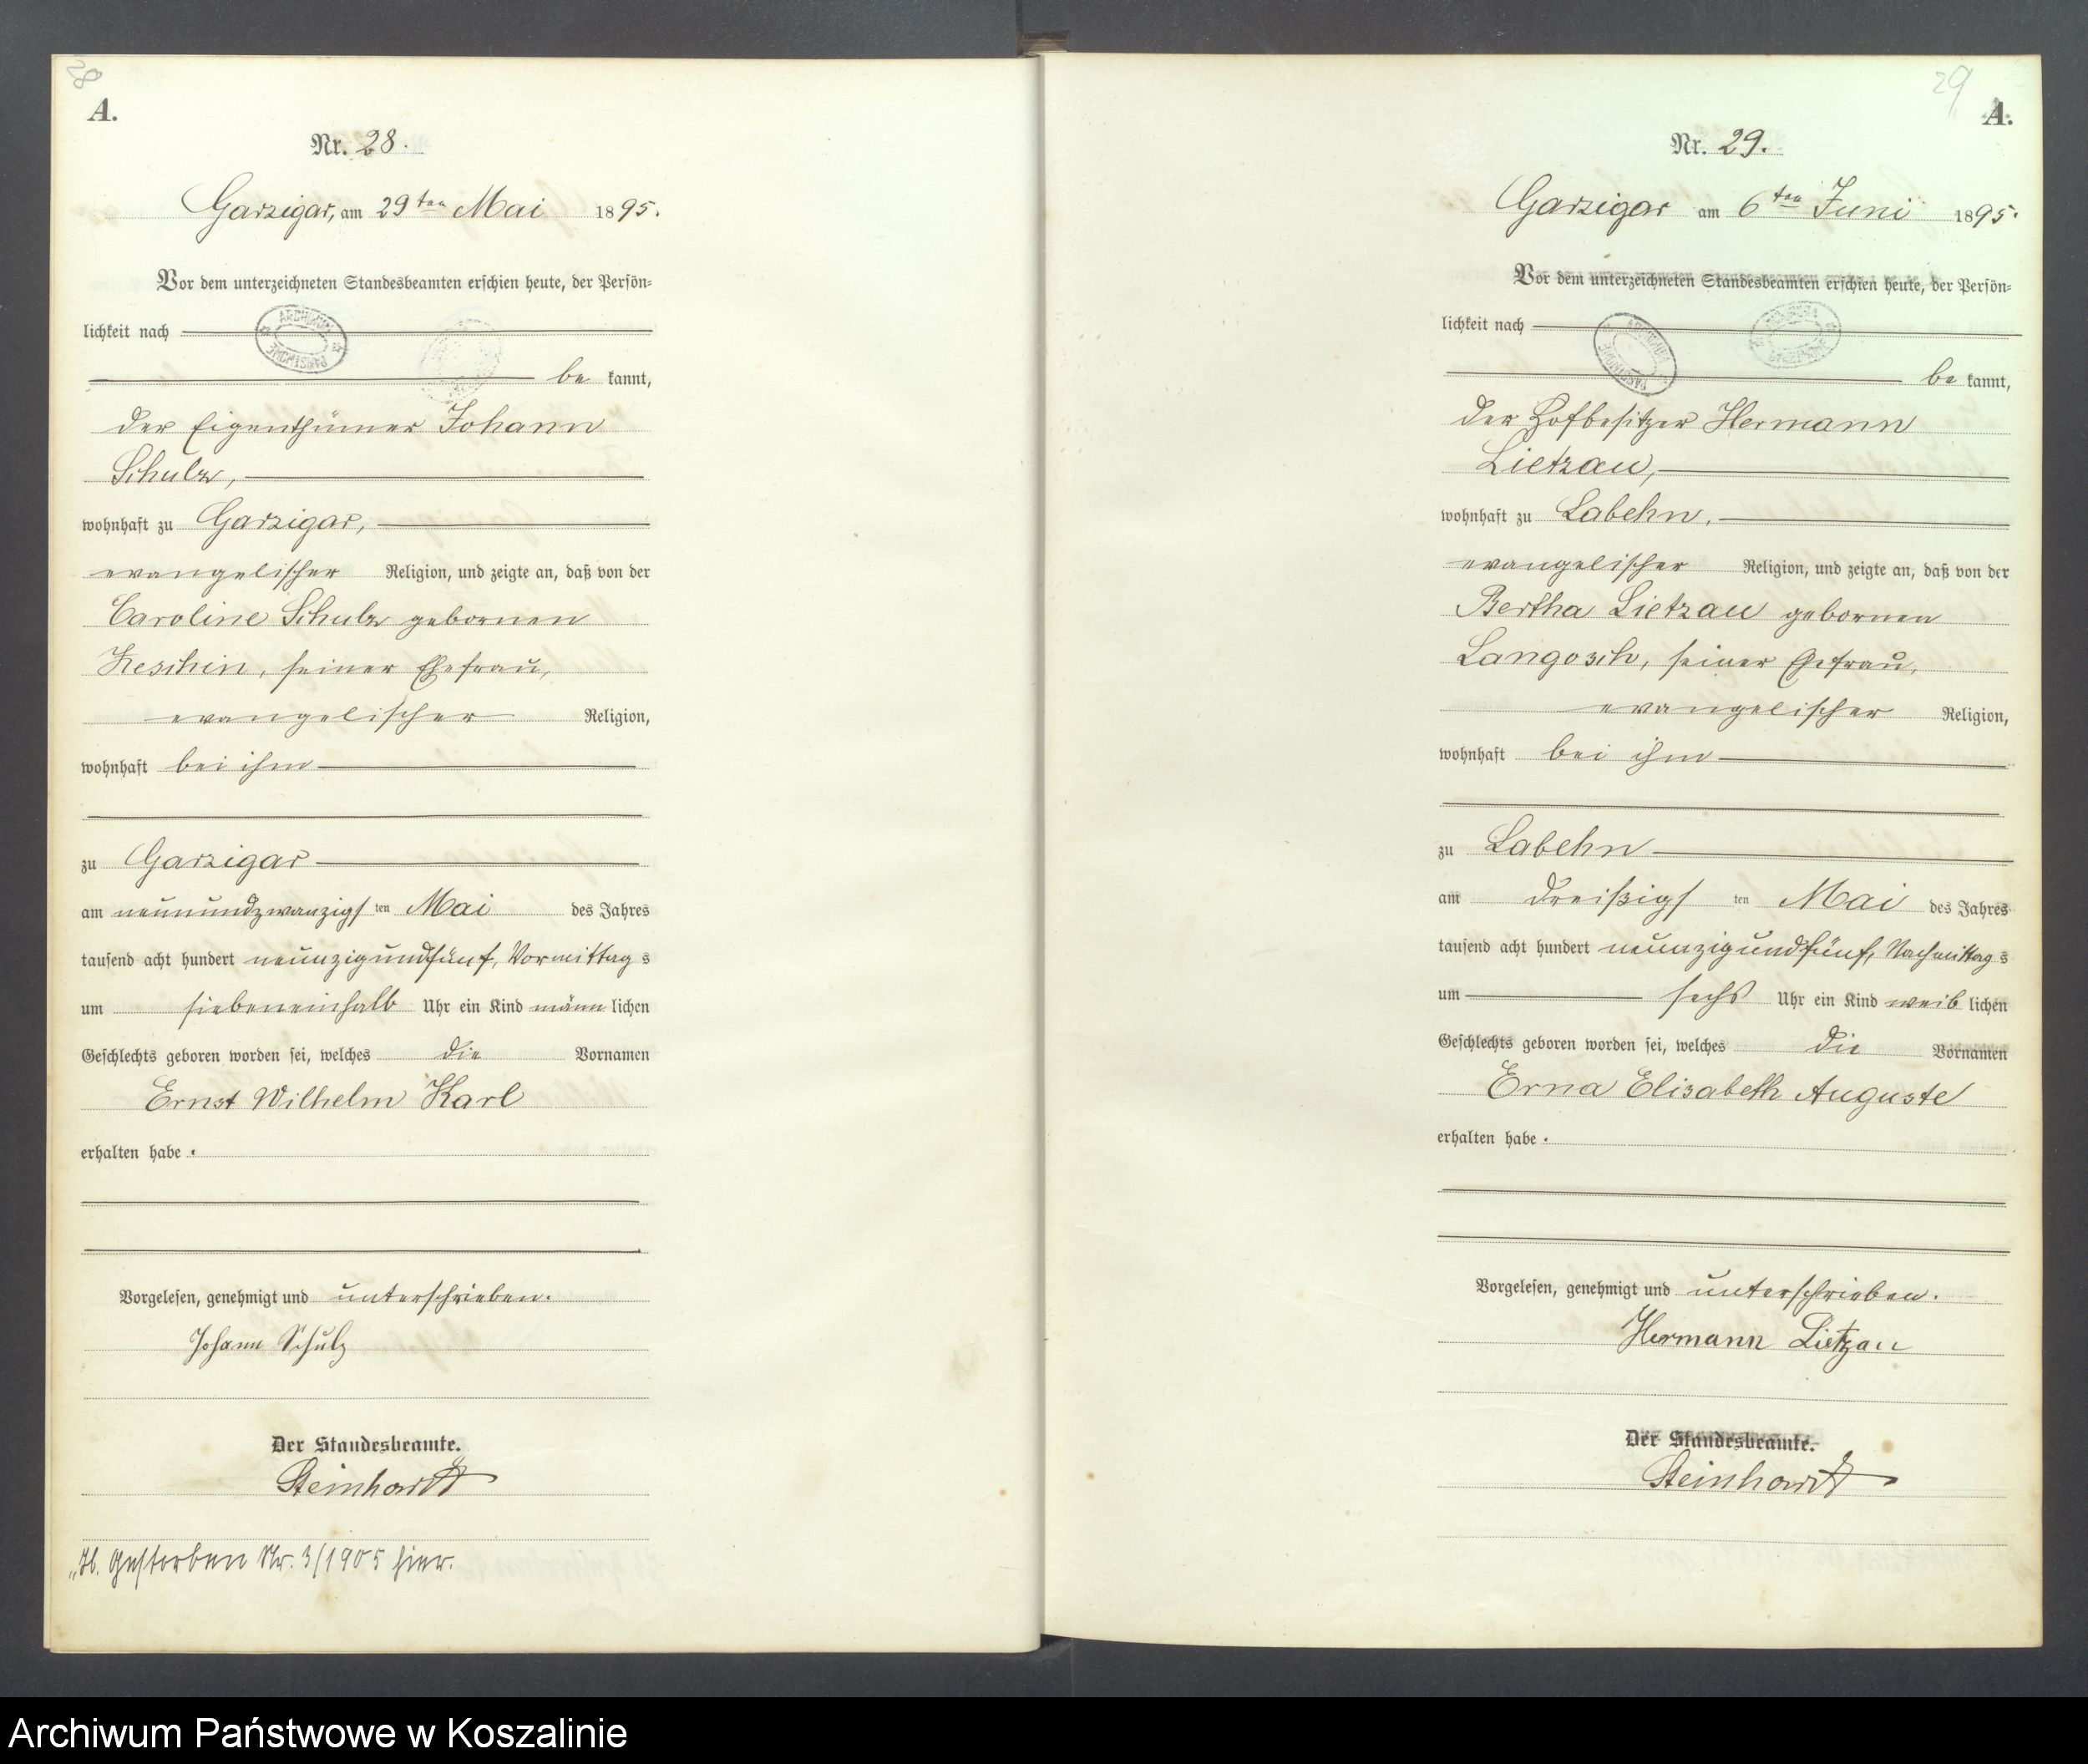 28
A.
Nr. 28.
Garzigar, am 29ten Mai 1895.
Vor dem unterzeichneten Standesbeamten erschien heute, der Persön-
lichkeit nach
ARCHIWUM PAŃSTWOWE
be kannt,
der Eigenthümer Johann
Schulz,
wohnhaft zu Garzigar,
evangelischer Religion, und zeigte an, daß von der
Caroline Schulz gebornen
Reschin, seiner Ehefrau,
evangelischer Religion,
wohnhaft bei ihm
zu Garzigar
am neunundzwanzigs ten Mai des Jahres
tausend acht hundert neunzigundfünf, Vormittag s
um siebeneinhalb Uhr ein Kind männ lichen
Geschlechts geboren worden sei, welches die Vornamen
Ernst Wilhelm Karl
erhalten habe.
Vorgelesen, genehmigt und unterschrieben.
Johann Schulz
Der Standesbeamte.
Steinhardt
Gestorben Nr. 3/1905 hier.
29
A.
Nr. 29.
Garzigar am 6ten Juni 1895.
Vor dem unterzeichneten Standesbeamten erschien heute, der Persön-
lichkeit nach
ARCHIWUM PAŃSTWOWE
be kannt,
der Hofbesitzer Hermann
Lietzau,
wohnhaft zu Labehn,
evangelischer Religion, und zeigte an, daß von der
Bertha Lietzau gebornen
Langosch, seiner Ehefrau,
evangelischer Religion,
wohnhaft bei ihm
zu Labehn
am dreißigs ten Mai des Jahres
tausend acht hundert neunzigundfünf, Nachmittag s
um sechs Uhr ein Kind weib lichen
Geschlechts geboren worden sei, welches die Vornamen
Erna Elisabeth Auguste
erhalten habe.
Vorgelesen, genehmigt und unterschrieben.
Hermann Lietzau
Der Standesbeamte.
Steinhardt
Archiwum Państwowe w Koszalinie